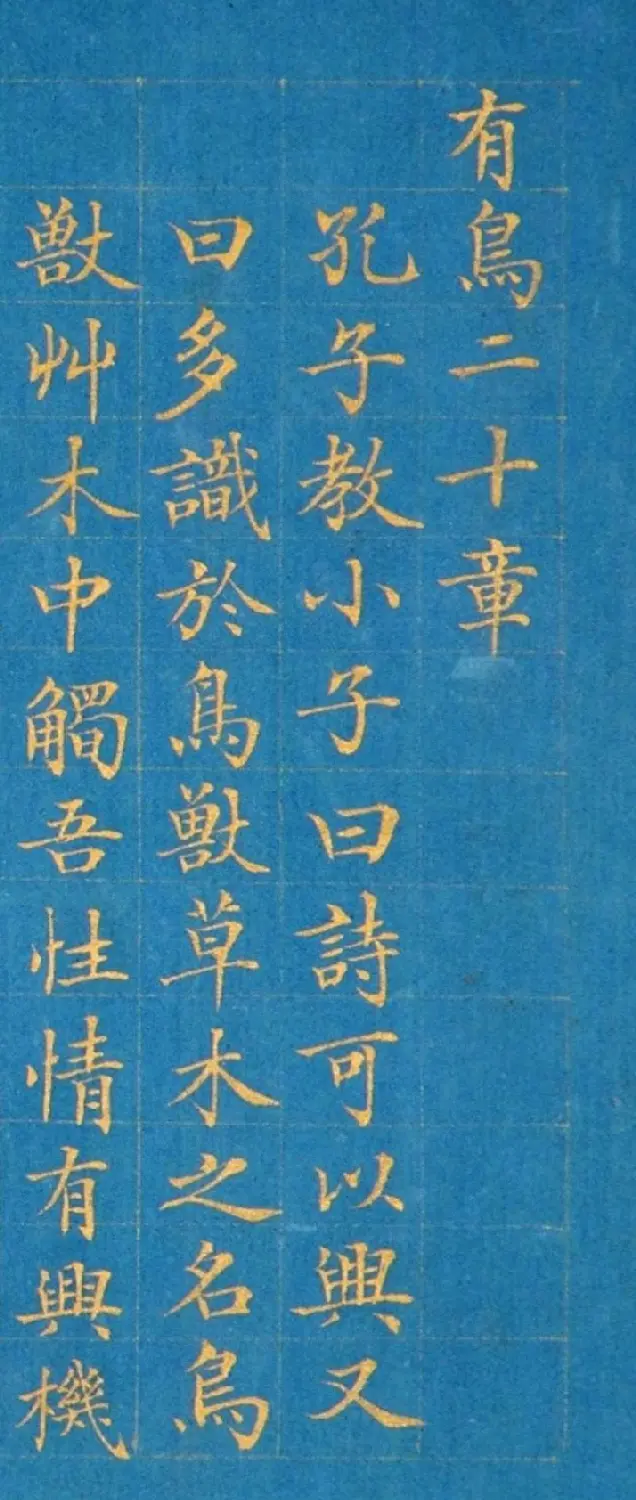 有鳥二十章
孔子教小子曰詩可以興又
曰多識於鳥獸草木之名鳥
獸艸木中觸吾性情有興機